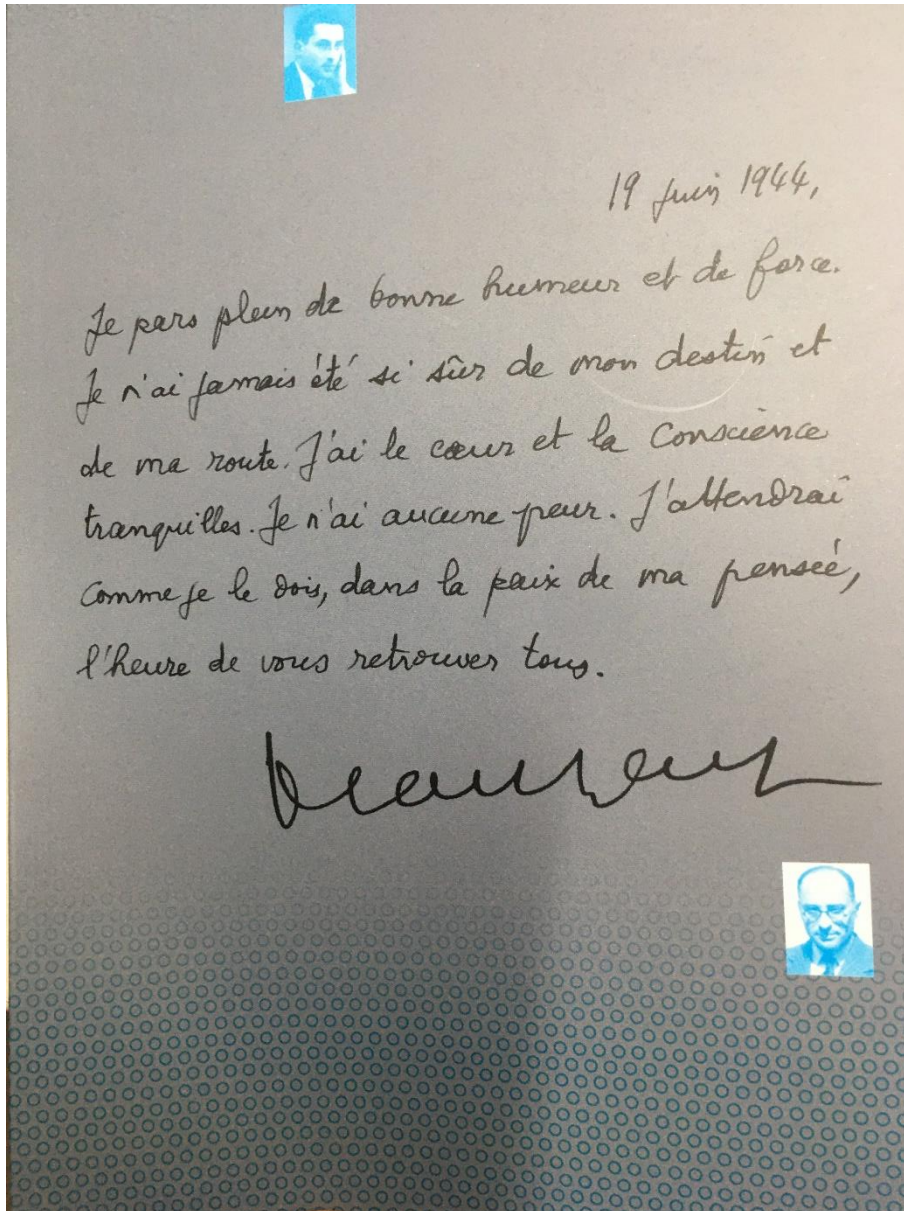 19 juin 1944,
Je pars plein de bonne humeur et de force.
Je n'ai jamais été si sûr de mon destin et
de ma route. J'ai le cœur et la Conscience
tranquilles. Je n'ai aucune peur. J'attendrai
comme je le dois, dans la paix de ma pensée,
l'heure de vous retrouver tous.